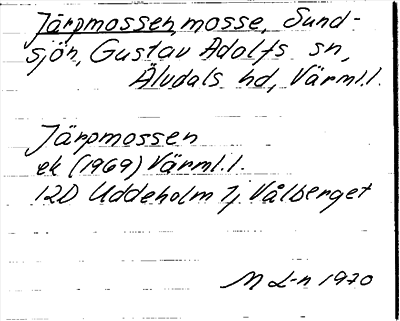 Järpmossen, mosse, Sund-
sjön, Gustav Adolfs sn,
Älvdals hd, Värml.l.
Järpmossen
ek (1969) Värml.l.
12D Uddeholm 7j Vålberget
M L-n 1970